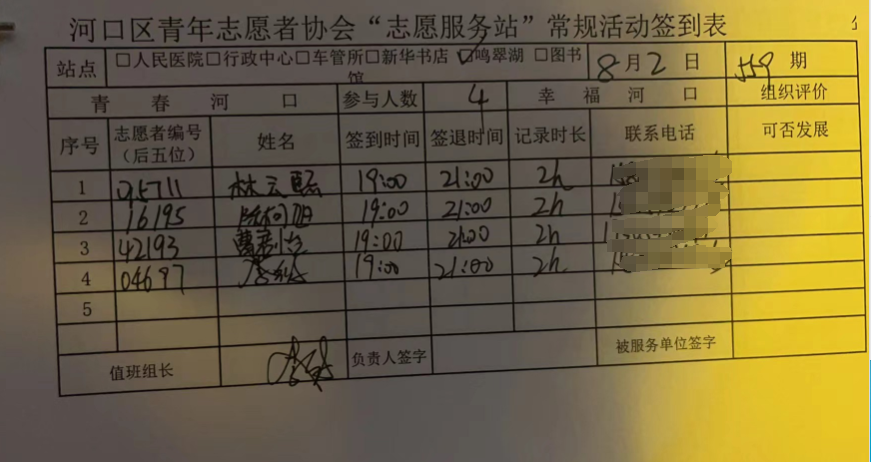 河口区青年志愿者协会“志愿服务站”常规活动签到表
站点 □人民医院□行政中心□车管所□新华书店 ☑鸣翠湖 □图书馆 8月2日 559期
青春河口 参与人数 4 幸福河口 组织评价
序号 志愿者编号（后五位） 姓名 签到时间 签退时间 记录时长 联系电话 可否发展
1 95711 林云 19:00 21:00 2h
2 16195 19:00 21:00 2h
3 42193 曹 19:00 21:00 2h
4 04697 19:00 21:00 2h
5
值班组长 负责人签字 被服务单位签字